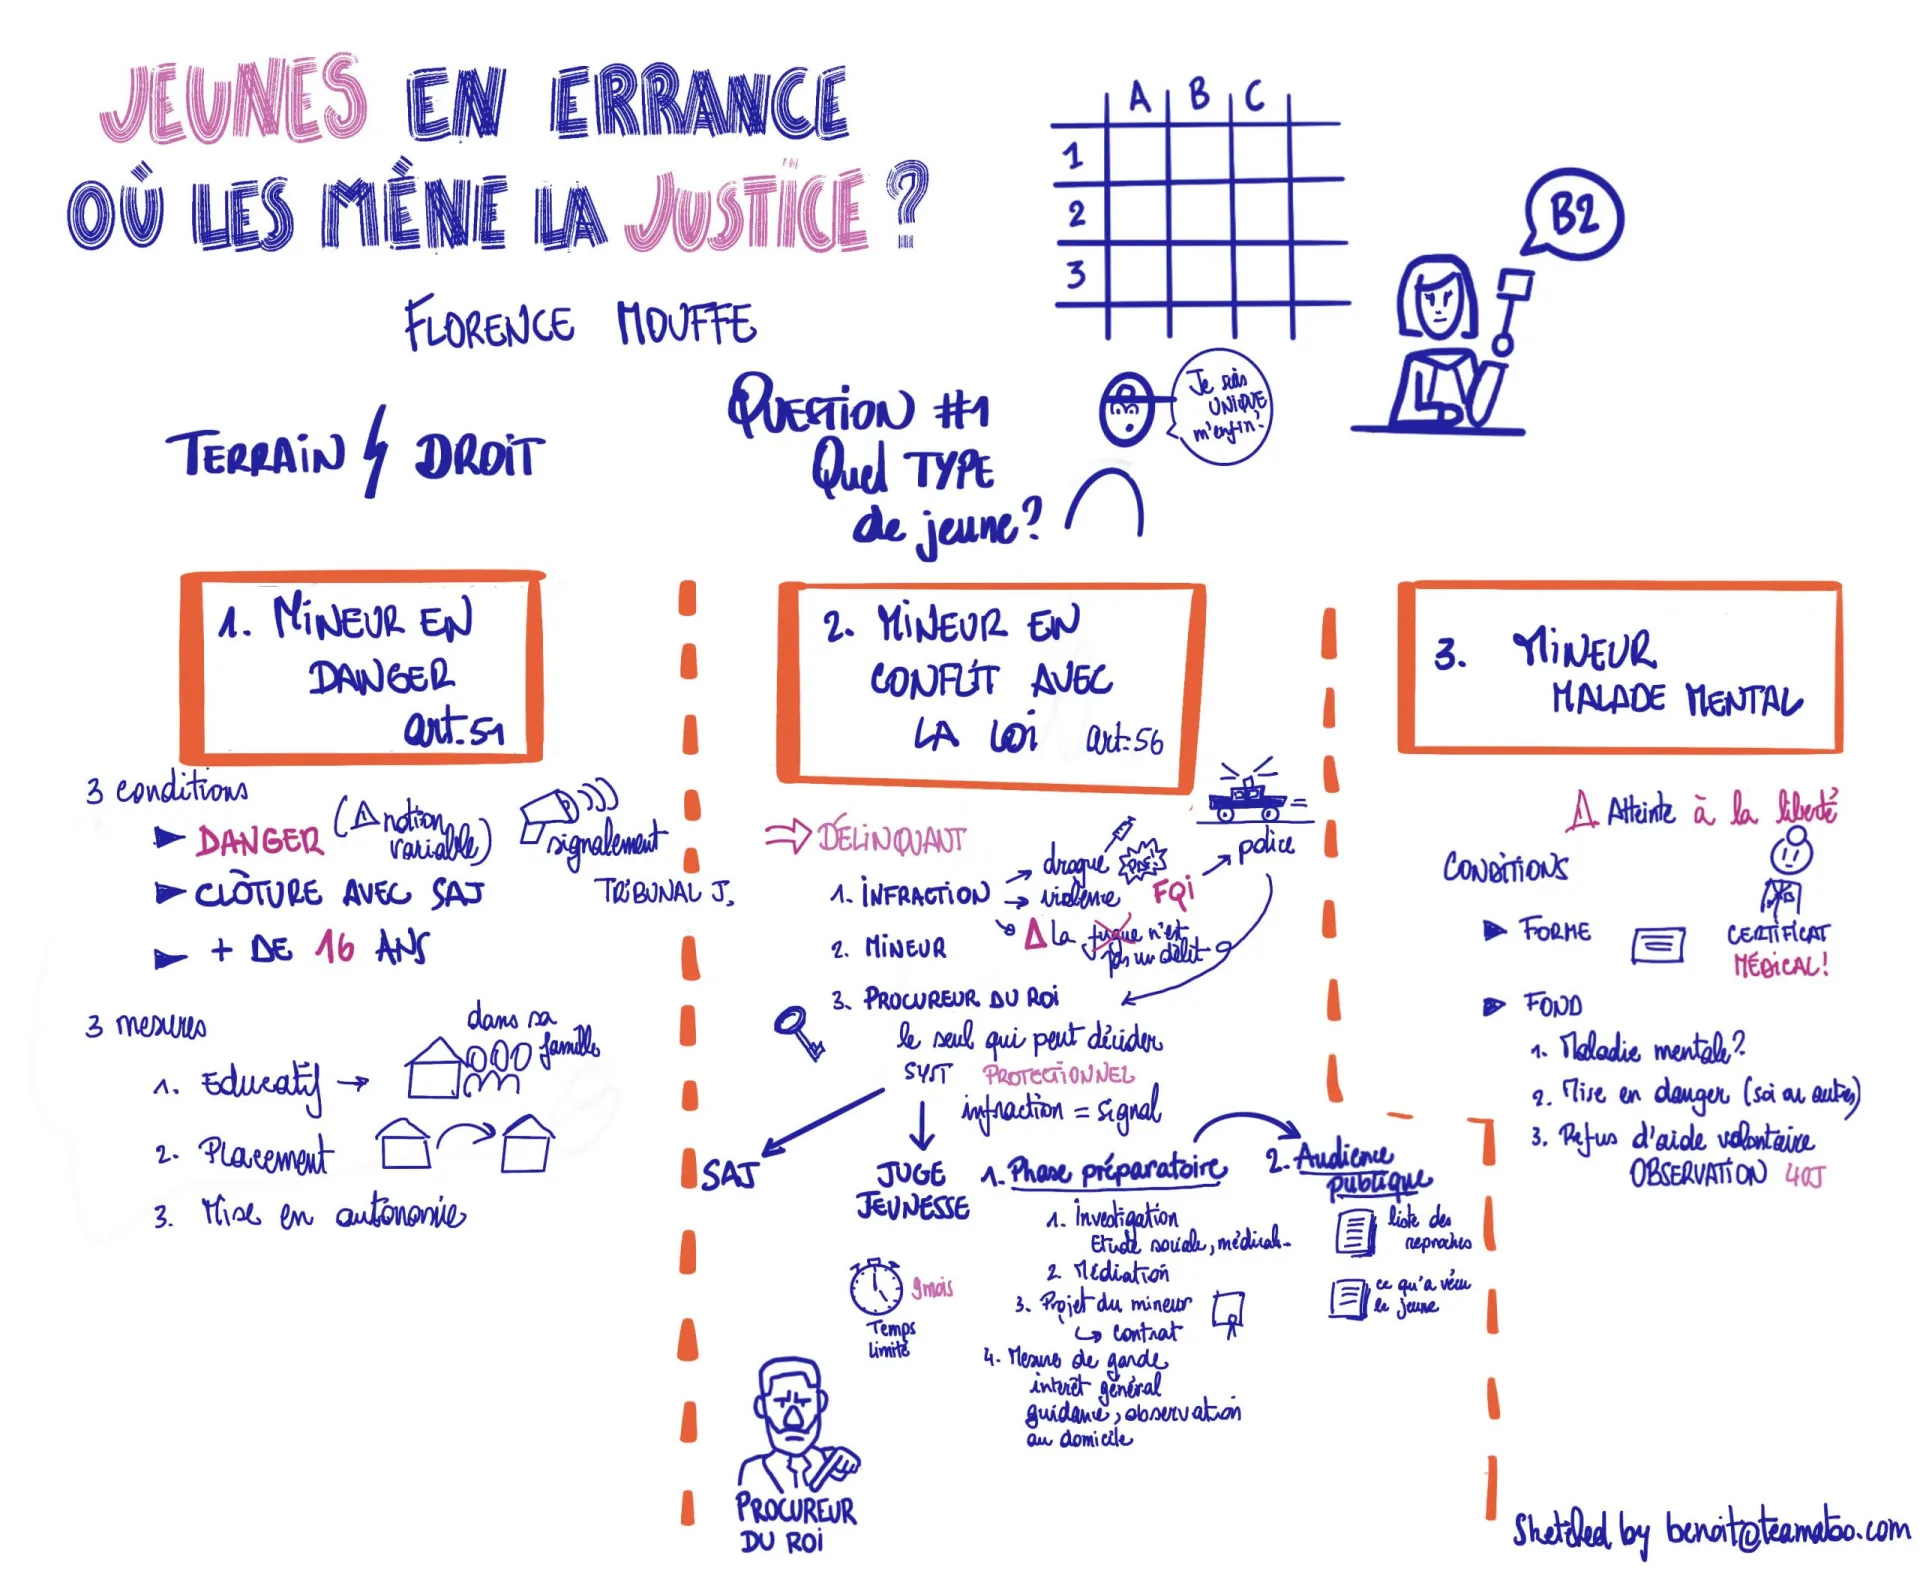 JEUNES EN ERRANCE
OÙ LES MÈNE LA JUSTICE ?
FLORENCE MOUFFE
A B C
1
2
3
B2
TERRAIN DROIT
QUESTION #1
Quel TYPE
de jeune?
Je suis
UNIQUE
m'enfin!
1. MINEUR EN
DANGER
art.51
3 conditions
DANGER
(⚠ notion
variable)
signalement
CLÔTURE AVEC SAJ
TRIBUNAL J.
+ DE 16 ANS
3 mesures
1. Educatif →
dans sa
famille
2. Placement
3. Mise en autonomie
2. MINEUR EN
CONFLIT AVEC
LA LOI art.56
⇒ DÉLINQUANT
1. INFRACTION
→ drogue
→ violence
FQI
→ police
⚠ la fugue n'est
pas un délit
2. MINEUR
3. PROCUREUR DU ROI
le seul qui peut décider
SYST PROTECTIONNEL
infraction = signal
SAJ
JUGE
JEUNESSE
9 mois
Temps
limité
1. Phase préparatoire
1. Investigation
Etude sociale, médicale
2. Médiation
3. Projet du mineur
↳ contrat
4. Mesure de garde
intérêt général
guidance, observation
au domicile
2. Audience
publique
liste des
reproches
ce qu'a vécu
le jeune
PROCUREUR
DU ROI
3. MINEUR
MALADE MENTAL
⚠ Atteinte à la liberté
CONDITIONS
FORME
CERTIFICAT
MÉDICAL!
FOND
1. Maladie mentale?
2. Mise en danger (soi ou autres)
3. Refus d'aide volontaire
OBSERVATION 40J
Sketched by benoit@teamatoo.com